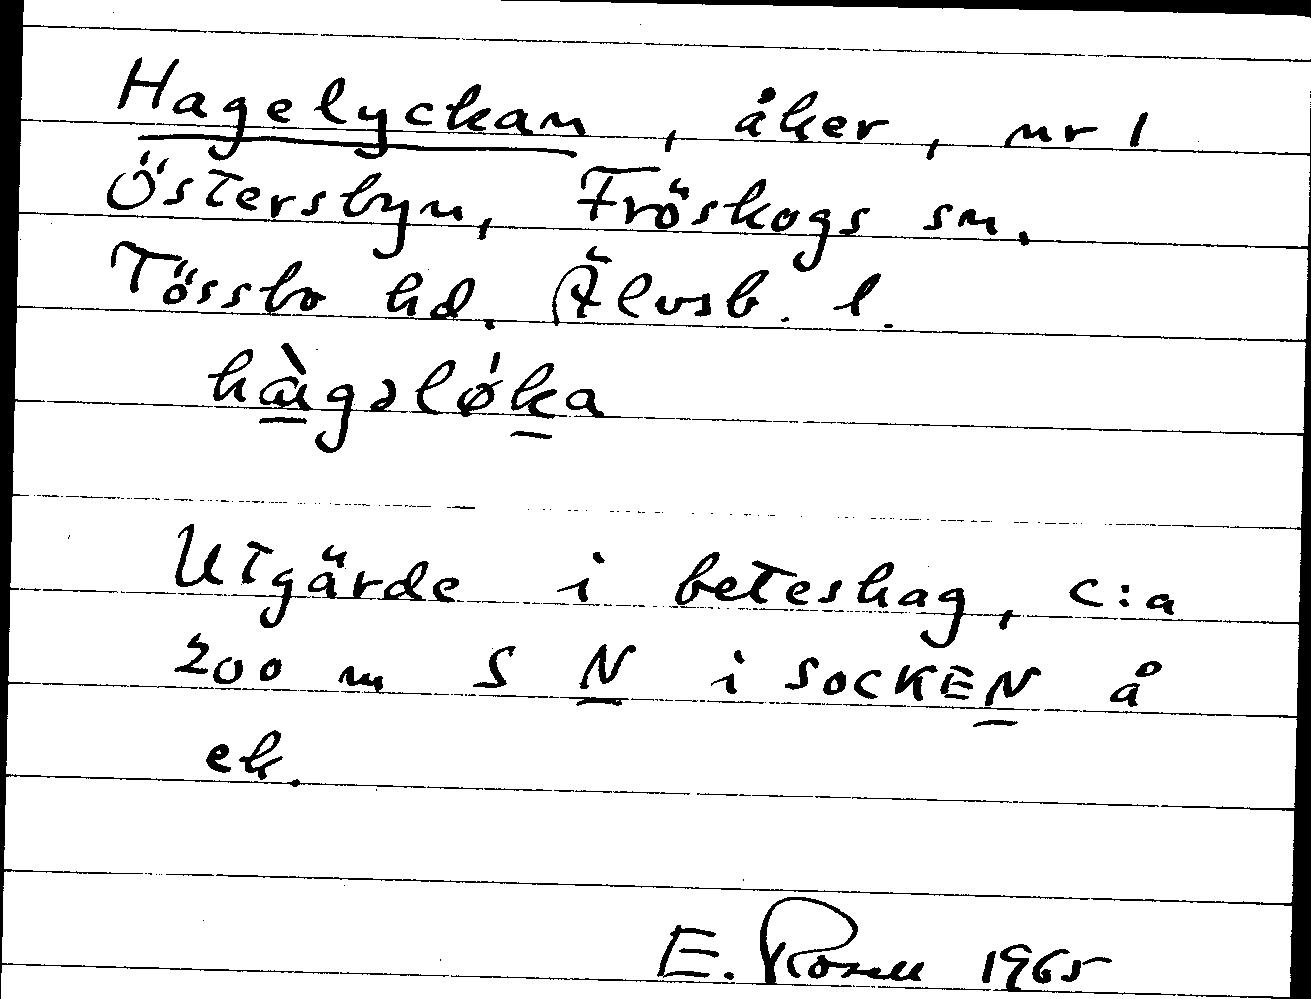 Hagelyckan, åker, nr 1
Östersbyn, Fröskogs sn.
Tössbo hd. Älvsb. l.
hàgəlǿka
Utgärde i beteshag, c:a
200 m S N i SOCKEN å
ek.
E. Rosell 1965